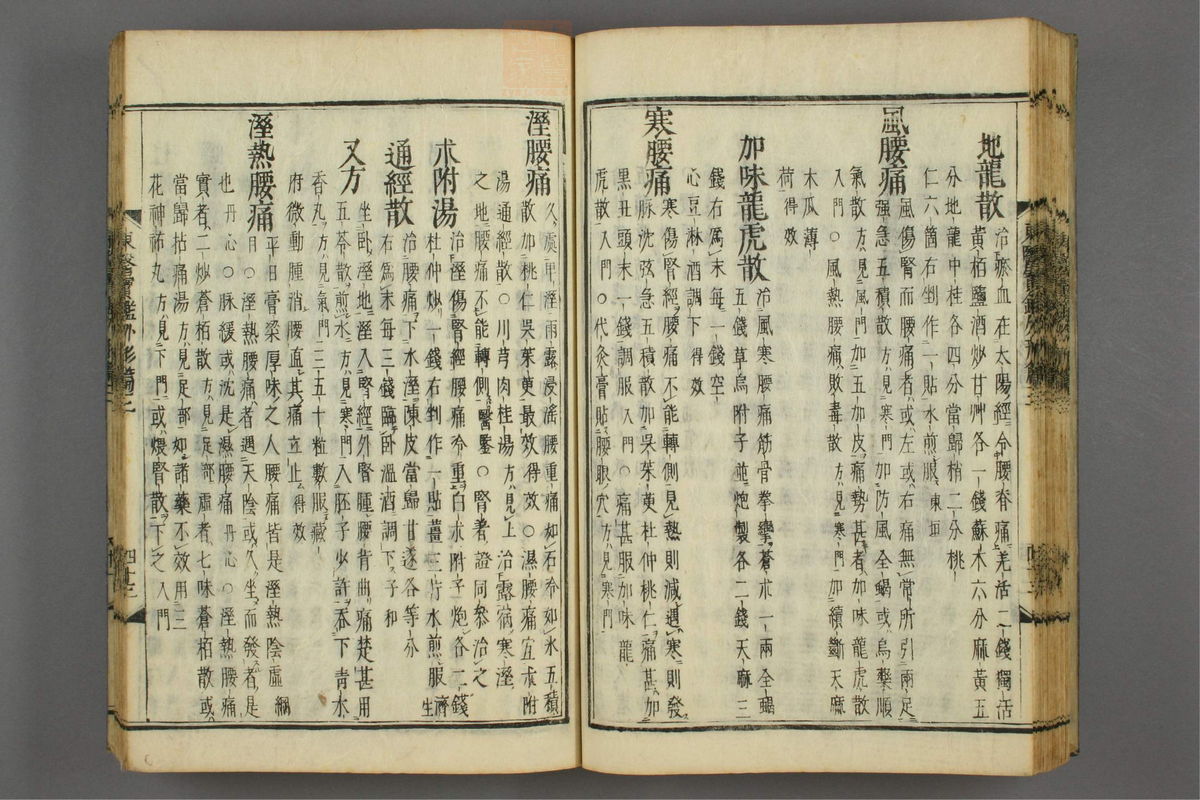 地龍散 治瘀血在太陽經令腰脊痛羌活二錢獨活
黃栢鹽酒炒甘艸各一錢蘇木六分麻黃五
分地龍中桂各四分當歸梢二分桃
仁六箇右剉作一貼水煎服東垣
風腰痛 風傷腎而腰痛者或左或右痛無常所引兩足
强急五積散方見寒門加防風全蝎或烏藥順
氣散方見風門加五加皮痛勢甚者加味龍虎散
入門○風熱腰痛敗毒散方見寒門加續斷天麻
木瓜薄
荷得效
加味龍虎散 治風寒腰痛筋骨拳攣蒼朮一兩全蝎
五錢草烏附子並炮製各二錢天麻三
錢右爲末每一錢空
心豆淋酒調下得效
寒腰痛 寒傷腎經腰痛不能轉側見熱則減遇寒則發
脉沈弦急五積散加吳茱萸杜仲桃仁痛甚加
黑丑頭末一錢調服入門○痛甚服加味龍
虎散入門○代灸膏貼腰眼穴方見寒門
溼腰痛 久處卑溼雨露浸淫腰重痛如石冷如氷五積
散加桃仁吳茱萸最效得效○濕腰痛宜朮附
湯通經散○川芎肉桂湯方見上治露宿寒溼
之地腰痛不能轉側醫鑒○腎着證同叅治之
朮附湯 治溼傷腎經腰痛冷重白朮附子炮各二錢
杜仲炒一錢右剉作一貼薑三片水煎服濟生
通經散 治腰痛下水溼陳皮當歸甘遂各等分
右爲末每三錢臨臥溫酒調下子和
又方 坐臥溼地溼入腎經外腎腫腰背曲痛楚甚用
五苓散煎水方見寒門入胚子少許吞下靑水
香丸方見氣門三五十粒數服藏
府微動腫消腰直其痛立止得效
溼熱腰痛 平日膏粱厚味之人腰痛皆是溼熱陰虛綱
目○溼熱腰痛者遇天陰或久坐而發者是
也丹心○脉緩或沈是濕腰痛丹心○溼熱腰痛
實者二炒蒼栢散方見足部虛者七味蒼栢散或
當歸枯痛湯方見足部如諸藥不效用三
花神祐丸方見下門或煨腎散下之入門
東醫寶鑑外形篇三
四十三